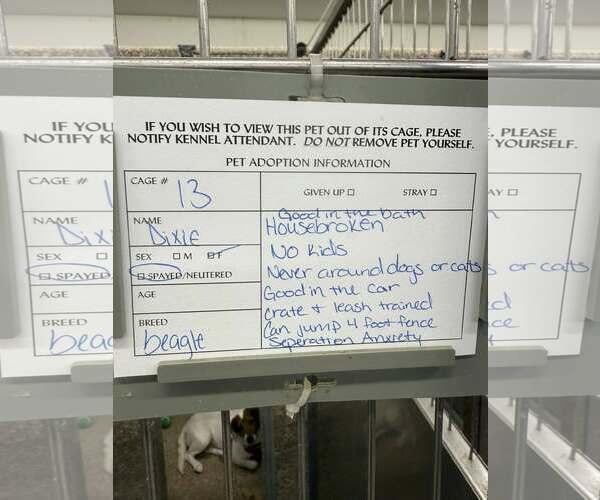 IF YOU WISH TO VIEW THIS PET OUT OF ITS CAGE, PLEASE
NOTIFY KENNEL ATTENDANT. DO NOT REMOVE PET YOURSELF.
PET ADOPTION INFORMATION
CAGE # 13
NAME Dixie
SEX ☐ M ☑ F
☐ SPAYED/NEUTERED
AGE
BREED beagle
GIVEN UP ☐ STRAY ☐
Good in the bath
Housebroken
No Kids
Never around dogs or cats
Good in the car
crate + leash trained
Can jump 4 foot fence
Seperation Anxiety
IF YOU
NOTIFY K
CAGE #
NAME
Dix
SEX
☐ SPAYED
AGE
BREED
beag
, PLEASE
YOURSELF.
AY ☐
s or cats
d
ce